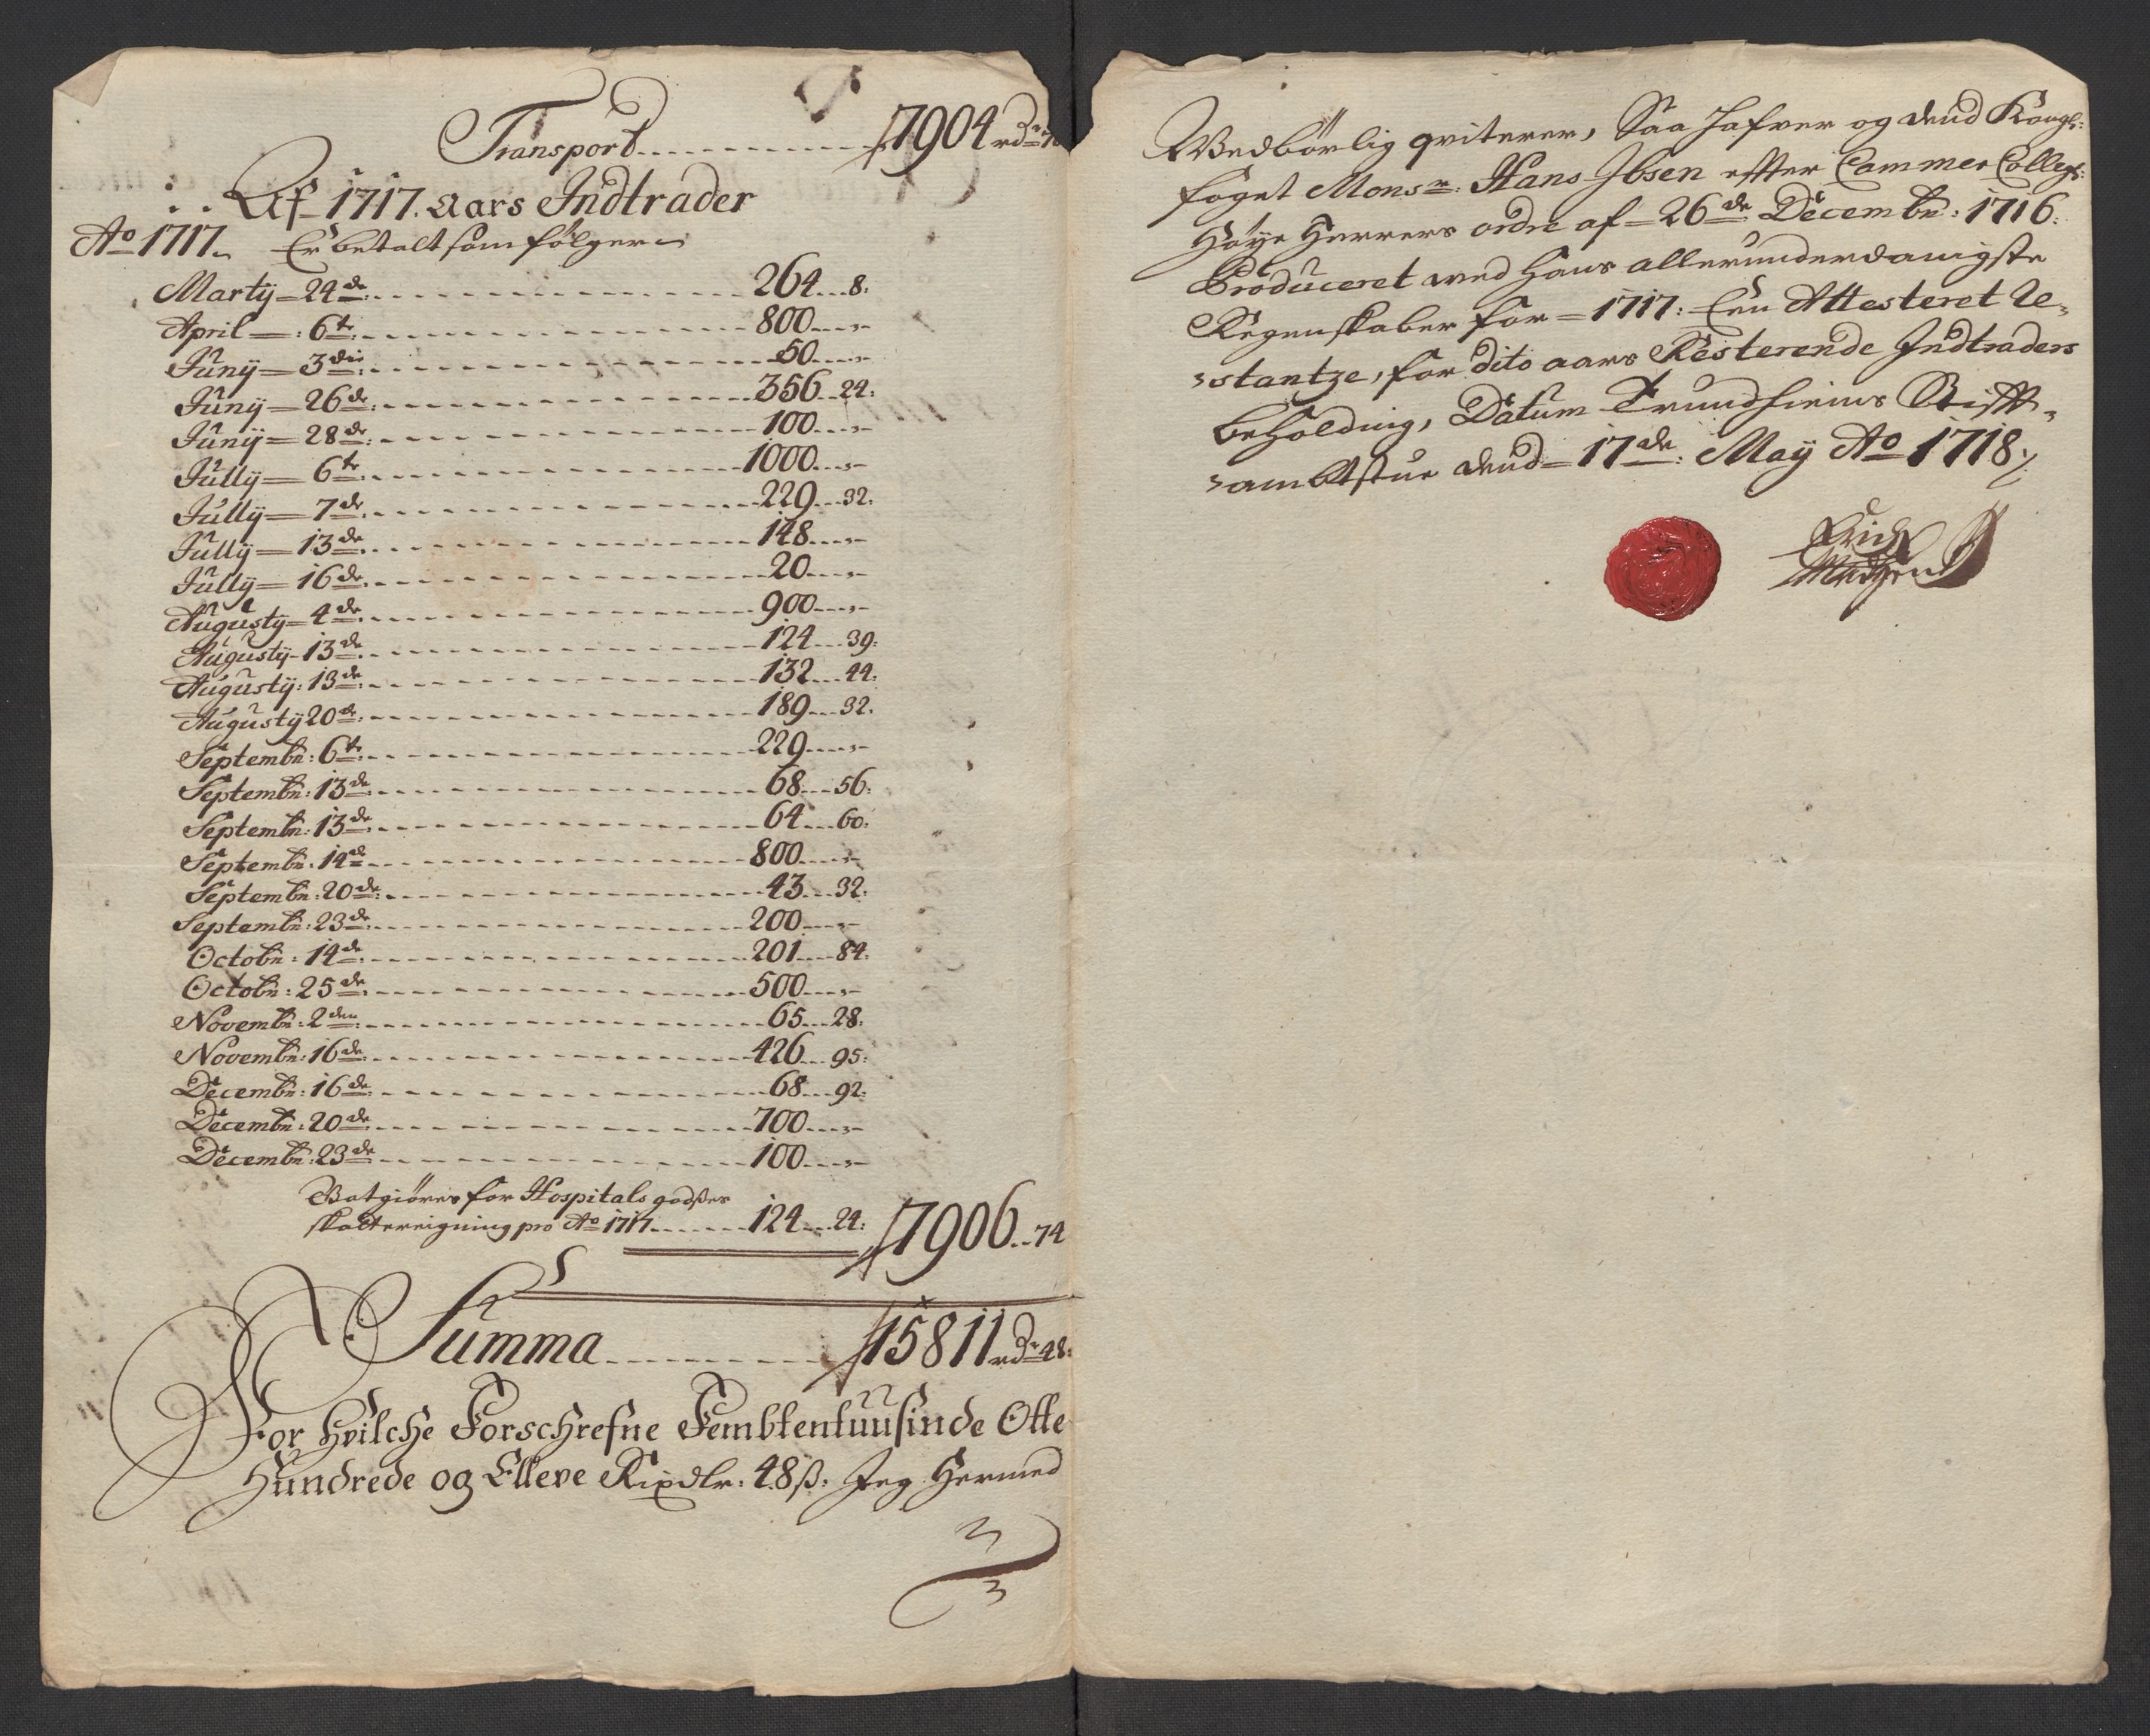 Transport 7904 rdr 70
Af 1717. Aars Indtrader
Ao 1717. Er betalt som følger
Marty 24de 264 8:
April : 6te 800
Juny 3die 50
Juny 26de 356 24:
Juny 28de 100
Jully 6te 1000
Jully 7de 229 32:
Jully 13de 148
Jully 16de 20
Augusty 4de 900
Augusty 13de 124 39:
Augusty: 13de 132 44:
Augusty 20de 189 32.
Septembr: 6te 229
Septembr: 13de 68 56:
Septembr: 13de 64 60:
Septembr: 14de 800
Septembr: 20de 43 32:
Septembr: 23de 200
Octobr: 14de 201 84:
Octobr: 25de 500
Novembr: 2den 65 28:
Novembr: 16de 426 95:
Decembr: 16de 68 92:
Decembr: 20de 700
Decembr: 23de 100
Gotgiöres for Hospitals godtzes
skatter eigning pro Ao 1717 124 24: 7906 74
Summa 15811 rdr 48:
For Hvilche Forschrefne Fembtentuusinde Otte
Hundrede og Elleve Rixdlr: 48 ß: Jeg Hermed
Wedbörlig qviterer, Saa hafver og dend Kongl:
foget Monsr: Hans Ibsen effter Cammer Collegs:
Höye Herrers ordre af 26de Decembr: 1716.
Produceret med hans allerunderdanigste
Regenskaber for 1717: Een Attesteret Re-
stantze, for dito aars Resterende Indtraders
beholdning, Datum Trundhiems Stifft-
ambtstue dend 17de: May Ao 1718
Erich